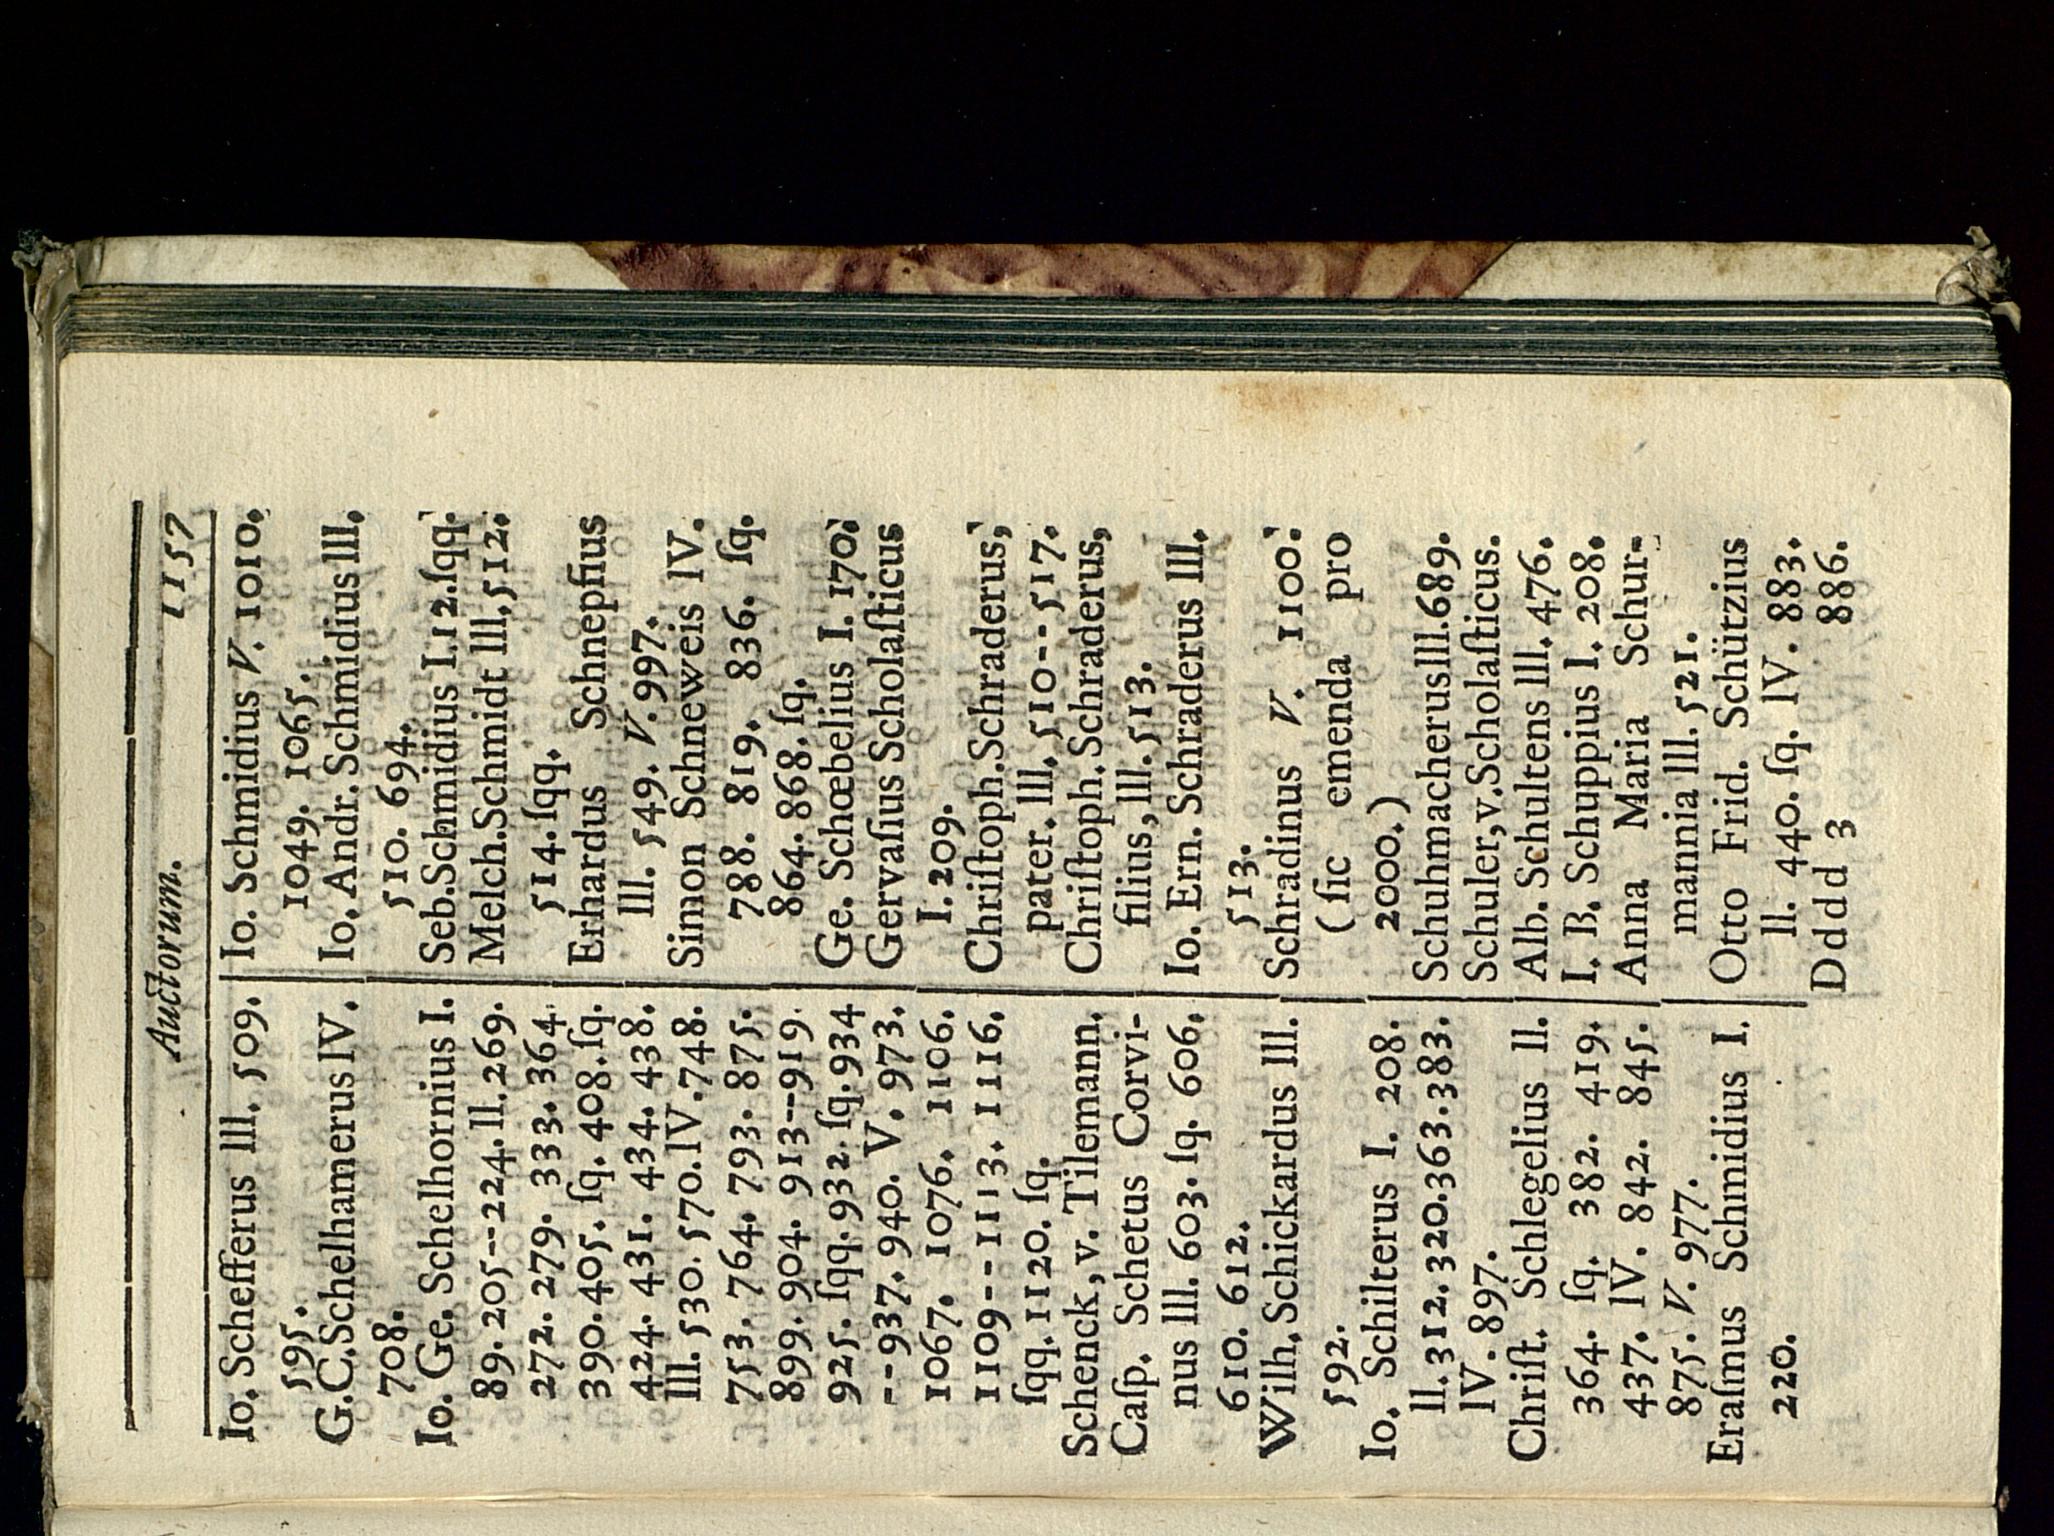 Auctorum. 1157
Io. Schefferus III. 509.
595.
G. C. Schelhamerus IV.
708.
Io. Ge. Schelhornius I.
89. 205--224. II. 269.
272. 279. 333. 364.
390. 405. ſq. 408. ſq.
424. 431. 434. 438.
III. 530. 570. IV. 748.
753. 764. 793. 875.
899. 904. 913--919.
925. ſqq. 932. ſq. 934
--937. 940. V. 973.
1067. 1076. 1106.
1109--1113. 1116.
ſqq. 1120. ſq.
Schenck, v. Tilemann.
Caſp. Schetus Corvi-
nus III. 603. ſq. 606.
610. 612.
Wilh. Schickardus III.
592.
Io. Schilterus I. 208.
II. 312. 320. 363. 383.
IV. 897.
Chriſt. Schlegelius II.
364. ſq. 382. 419.
437. IV. 842. 845.
875. V. 977.
Eraſmus Schmidius I.
220.
Io. Schmidius V. 1010.
1049. 1065.
Io. Andr. Schmidius III.
510. 694.
Seb. Schmidius I. 12. ſqq.
Melch. Schmidt III. 512.
514. ſqq.
Erhardus Schnepfius
III. 549. V. 997.
Simon Schneweis IV.
788. 819. 836. ſq.
864. 868. ſq.
Ge. Schœbelius I. 170.
Gervaſius Scholaſticus
I. 209.
Chriſtoph. Schraderus,
pater. III. 510--517.
Chriſtoph. Schraderus,
filius, III. 513.
Io. Ern. Schraderus III.
513.
Schradinus V. 1100.
(ſic emenda pro
2000.)
Schuhmacherus III. 689.
Schuler, v. Scholaſticus.
Alb. Schultens III. 476.
I. B. Schuppius I. 208.
Anna Maria Schur-
mannia III. 521.
Otto Frid. Schützius
II. 440. ſq. IV. 883.
Dddd 3 886.